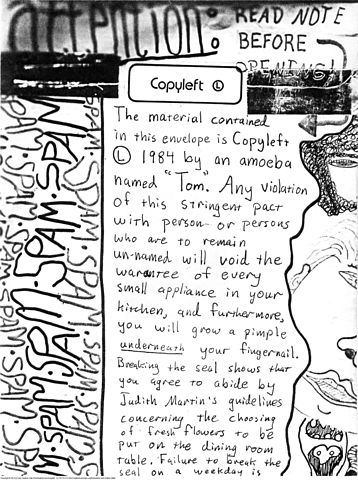 attention:
READ NOTE
BEFORE
OPENING!
Copyleft Ⓛ
The material contained
in this envelope is Copyleft
Ⓛ 1984 by an amoeba
named "Tom." Any violation
of this stringent pact
with person or persons
who are to remain
un-named will void the
warantee of every
small appliance in your
kitchen, and furthermore,
you will grow a pimple
underneath your fingernail.
Breaking the seal shows that
you agree to abide by
Judith Martin's guidelines
concerning the choosing
of fresh flowers to be
put on the dining room
table. Failure to break the
seal on a weekday is
SPAM·SPAM·SPAM·SPAM·SPAM
SPAM·SPAM·SPAM·SPAM
M·SPAM·SPAM·SPAM·SPAM
SPAM·SPAM·SPAM·SPAM·SPAM